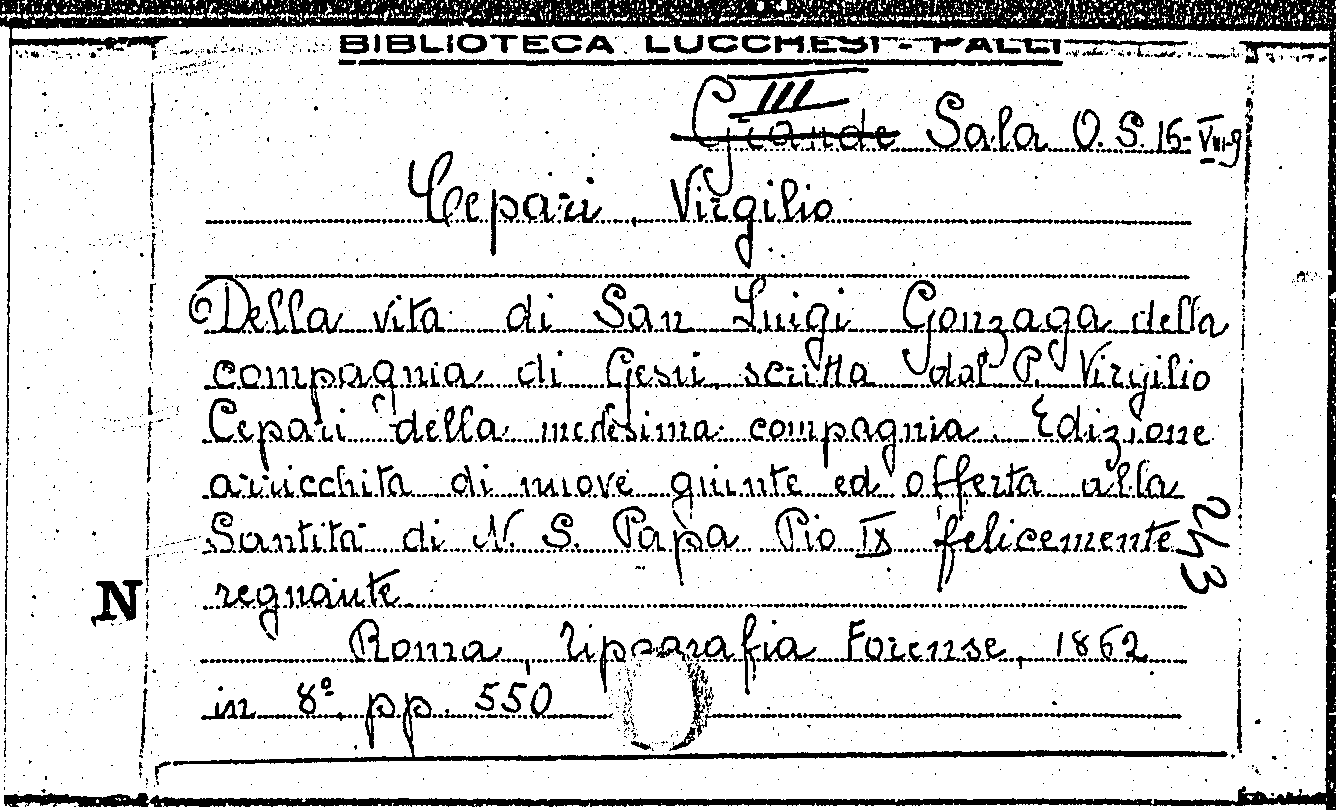 BIBLIOTECA LUCCHESI - PALLI
III
Grande Sala O. S. 15-VIII-9
Cepari, Virgilio
Della vita di San Luigi Gonzaga della
compagnia di Gesù scritta dal P. Virgilio
Cepari della medesima compagnia. Edizione
arricchita di nuove giunte ed offerta alla
Santità di N. S. Papa Pio IX felicemente
regnante
243
N
Roma, Tipografia Forense, 1862
in 8º pp. 550